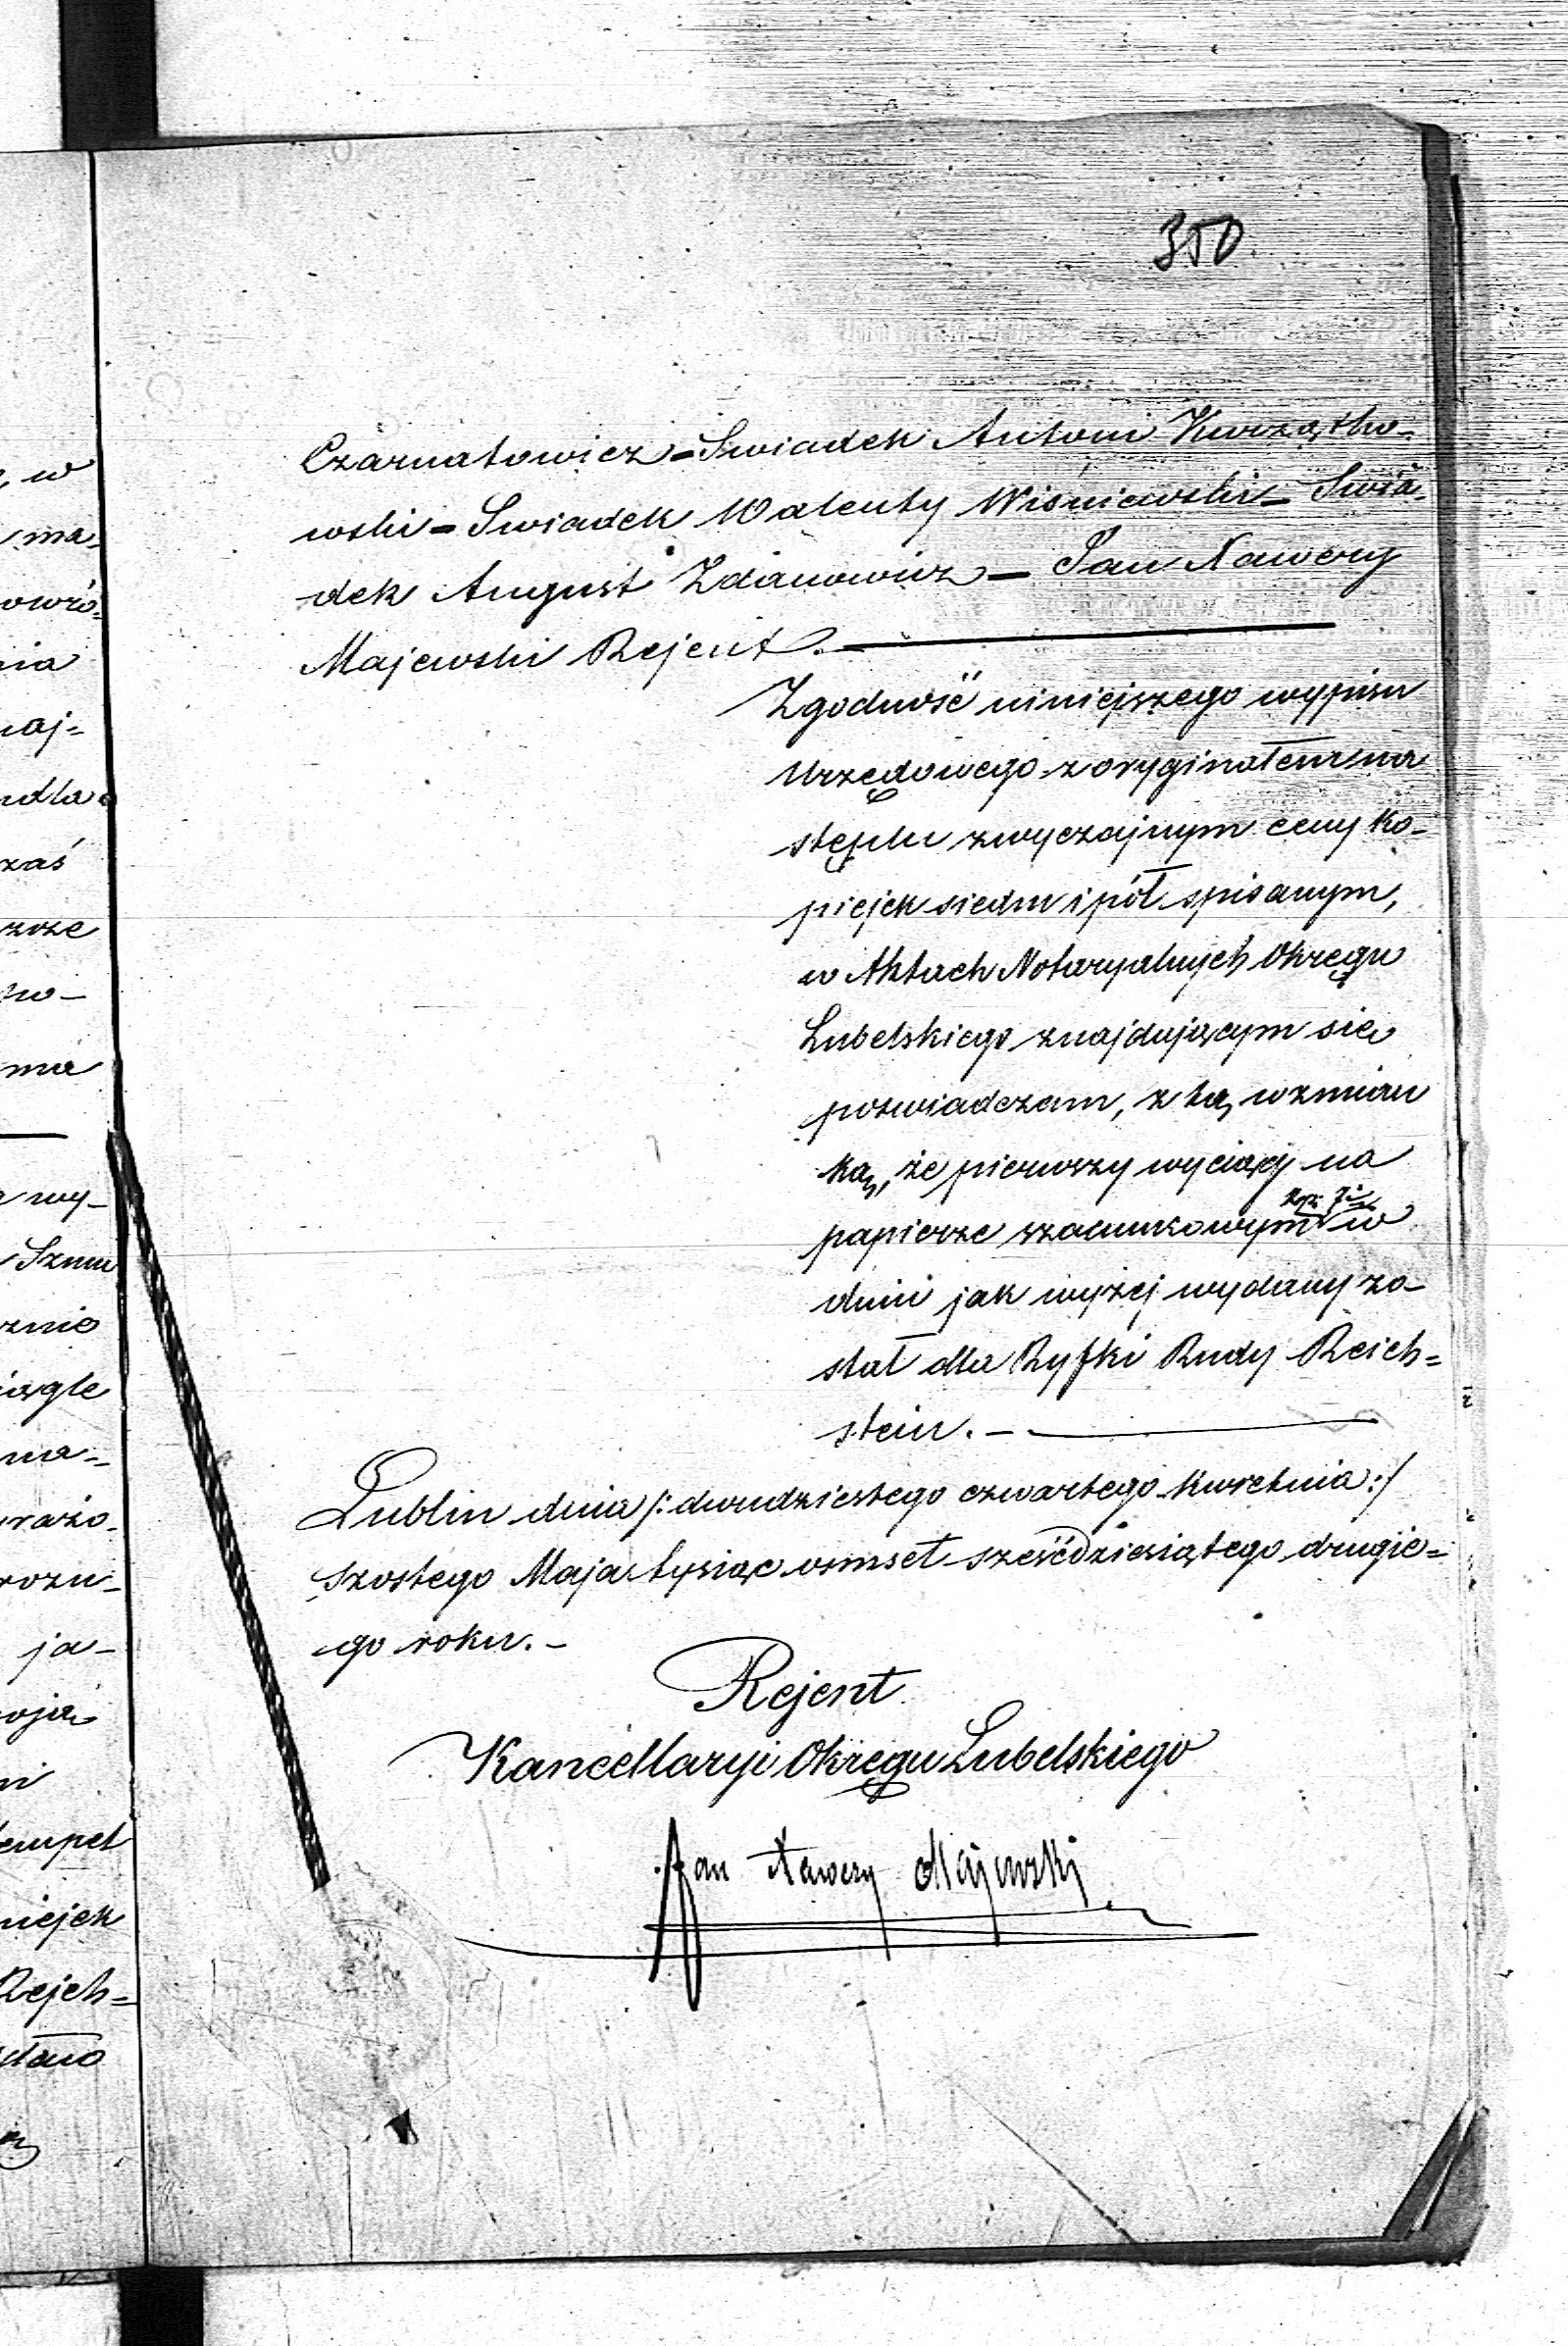 350
Czarnatowicz = Swiadek Antoni Kurzątko-
wski = Swiadek Walenty Wiśniewski = Swia-
dek August Zdanowicz — Jan Xawery
Majewski Rejent. —
Zgodność niniejszego wypisu
Urzędowego z oryginałem na
stęplu zwyczajnym ceny ko-
piejek siedm i pół spisanym,
w Aktach Notaryalnych Okręgu
Lubelskiego znajdującym się
poświadczam, z tą wzmian
ką, że pierwszy wyciąg na
papierze szacunkowym w
dniu jak wyżej wydany zo-
stał dla Ryfki Rudy Reich=
stein. —
Lublin dnia /: dwudziestego czwartego Kwietnia :/
szostego Maja tysiąc osmset sześćdziesiątego drugie=
go roku. —
Rejent
Kancellaryi Okręgu Lubelskiego
Jan Xawery Majewski
, w
ma-
owró-
nia
naj-
dla
zaś
ma
wy-
Szmu
znie
iągle
ma=
rozu-
ja-
empel
iejek
Rejch=